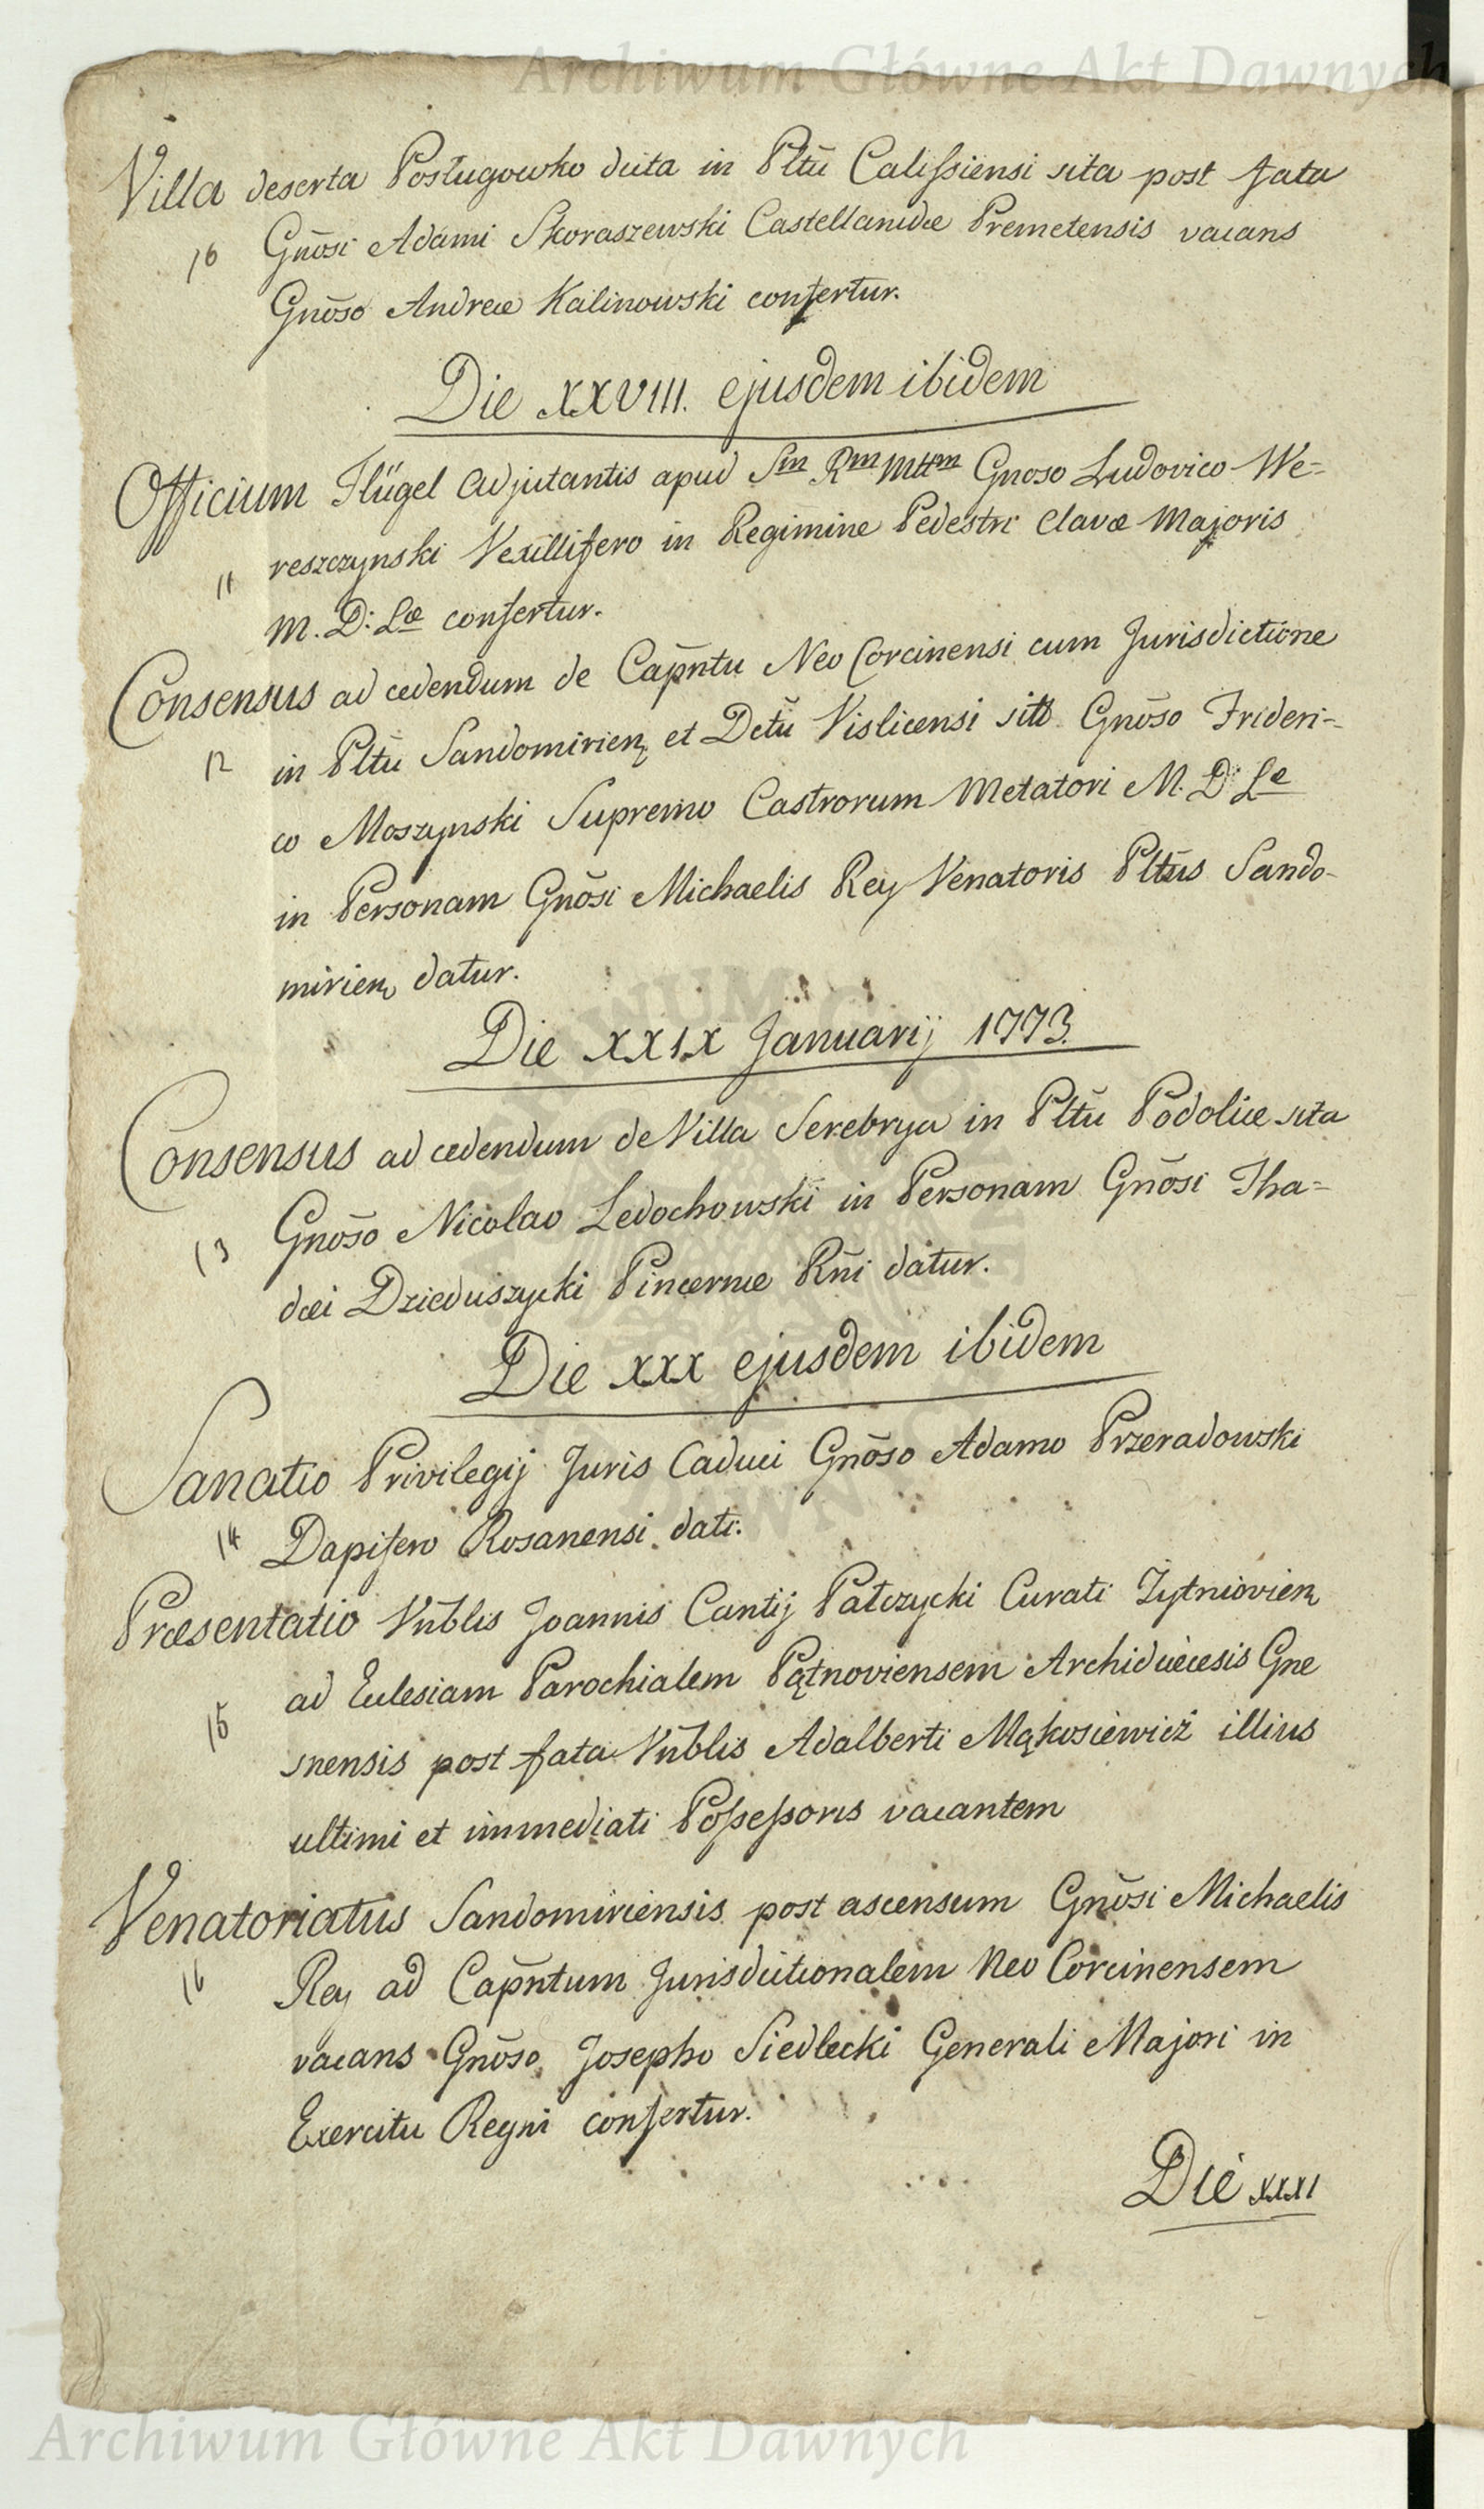 Archiwum Główne Akt Dawnych
Villa deserta Posługowko dicta in Pltū Calissiensi sita post fata
10 Gnōsi Adami Skoraszewski Castellanidæ Premetensis vacans
Gnōso Andreæ Kalinowski confertur.
Die XXVIII. ejusdem ibidem
Officium Flügel Adjutantis apud Sm Rm Mttm Gnoso Ludovico We=
11 reszczynski Vexillifero in Regimine Pedestri Clavæ Majoris
M. D: Læ confertur.
Consensus ad cedendum de Capn̄tu Neo Corcinensi cum Jurisdictione
12 in Pltū Sandomirien et Dctū Vislicensi sito Gnōso Frideri=
co Moszynski Supremo Castrorum Metatori M. D. Le
in Personam Gnōsi Michaelis Rey Venatoris Pltūs Sando-
mirien datur.
Die XXIX Januarij 1773.
Consensus ad cedendum de Villa Serebrya in Pltū Podoliæ sita
13 Gnōso Nicolao Ledochowski in Personam Gnōsi Tha=
dæi Dzieduszycki Pincernæ Rn̄i datur.
Die XXX ejusdem ibidem
Sanatio Privilegij Juris Caduci Gnōso Adamo Przeradowski
14 Dapifero Rosanensi dati.
Præsentatio Vn̄blis Joannis Cantij Pałczycki Curati Żytniovien
15 ad Ecclesiam Parochialem Pątnoviensem Archidiœcesis Gne
snensis post fata Vn̄blis Adalberti Mąkosiewicż illius
ultimi et immediati Possessoris vacantem
Venatoriatus Sandomiriensis post ascensum Gnōsi Michaelis
16 Rey ad Capn̄tum Jurisdictionalem Neo Corcinensem
vacans Gnōso Josepho Siedlecki Generali Majori in
Exercitu Regni confertur.
Die XXXI
Archiwum Główne Akt Dawnych